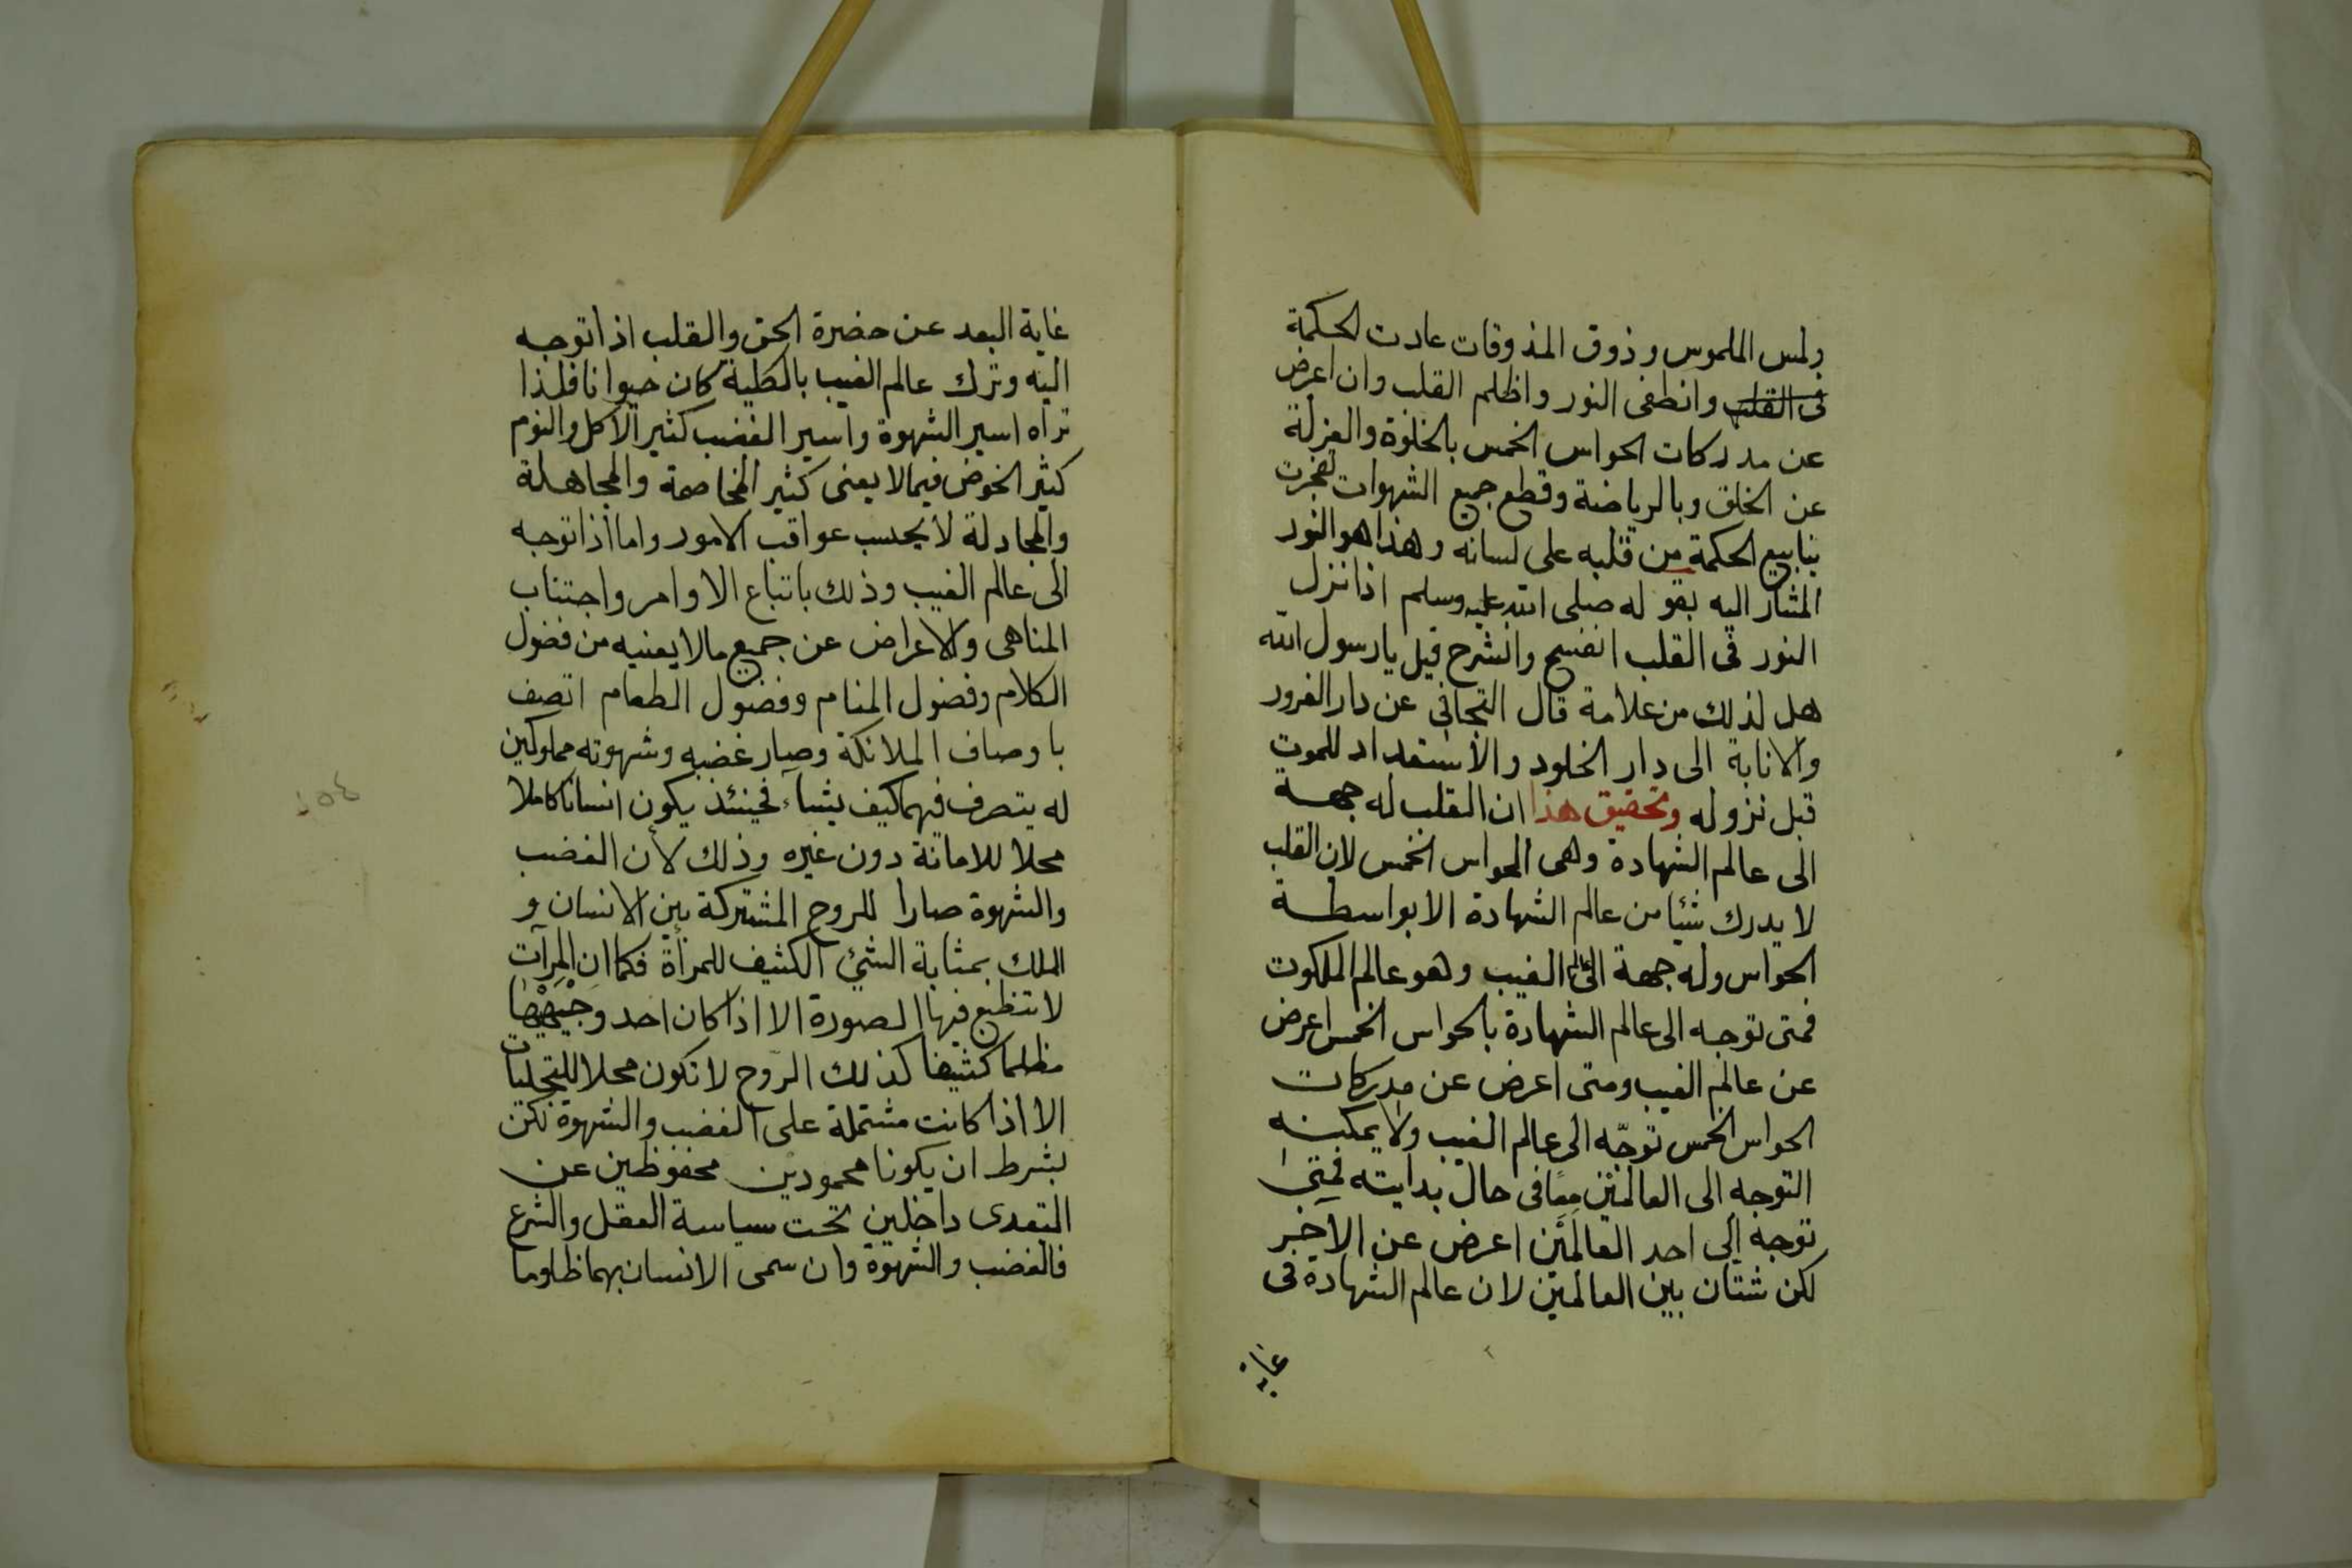 ولمس الملموس وذوق المذوقات عادت الحكمة
فى القلب وانطفى النور واظلم القلب وان اعرض
عن مدركات الحواس الخمس بالخلوة والعزلة
عن الخلق وبالرياضة وقطع جميع الشهوات تفجرت
ينابيع الحكمة من قلبه على لسانه وهذا هو النور
المشار اليه بقوله صلى الله عليه وسلم اذا نزل
النور فى القلب انفسح وانشرح قيل يا رسول الله
هل لذلك من علامة قال التجافى عن دار الغرور
والانابة الى دار الخلود والاستعداد للموت
قبل نزوله وتحقيق هذا ان القلب له جهة
الى عالم الشهادة وهى الحواس الخمس لان القلب
لا يدرك شيئا من عالم الشهادة الا بواسطة
الحواس وله جهة الى عالم الغيب وهو عالم الملكوت
فمتى توجه الى عالم الشهادة بالحواس الخمس اعرض
عن عالم الغيب ومتى اعرض عن مدركات
الحواس الخمس توجّه الى عالم الغيب ولا يمكنه
التوجه الى العالمين معًا فى حال بدايته فمتى
توجه الى احد العالمَين اعرض عن الآخر
لكن شتان بين العالمين لان عالم الشهادة فى
غاية
غاية البعد عن حضرة الحق والقلب اذا توجه
اليه وترك عالم الغيب بالكلية كان حيوانا فلذا
تراه اسير الشهوة واسير الغضب كثير الاكل والنوم
كثير الخوض فيما لا يعنى كثير المخاصمة والمجاهلة
والمجادلة لا يحسب عواقب الامور واما اذا توجه
الى عالم الغيب وذلك باتباع الاوامر واجتناب
المناهى والاعراض عن جميع ما لا يعنيه من فضول
الكلام وفضول المنام وفضول الطعام اتصف
باوصاف الملائكة وصار غضبه وشهوته مملوكين
له يتصرف فيهما كيف يشآء فحينئذ يكون انسانا كاملا
محلا للامانة دون غيره وذلك لأن الغضب
والشهوة صارا للروح المشتركة بين الانسان و
الملك بمثابة الشئ الكثيف للمرأة فكما ان المرآت
لا تنطبع فيها الصورة الا اذا كان احد وجهيها
مظلما كثيفا كذلك الروح لا تكون محلا للتجليات
الا اذا كانت مشتملة على الغضب والشهوة لكن
بشرط ان يكونا محمودين محفوظين عن
التعدى داخلين تحت سياسة العقل والشرع
فالغضب والشهوة وان سمى الانسان بهما ظلوما